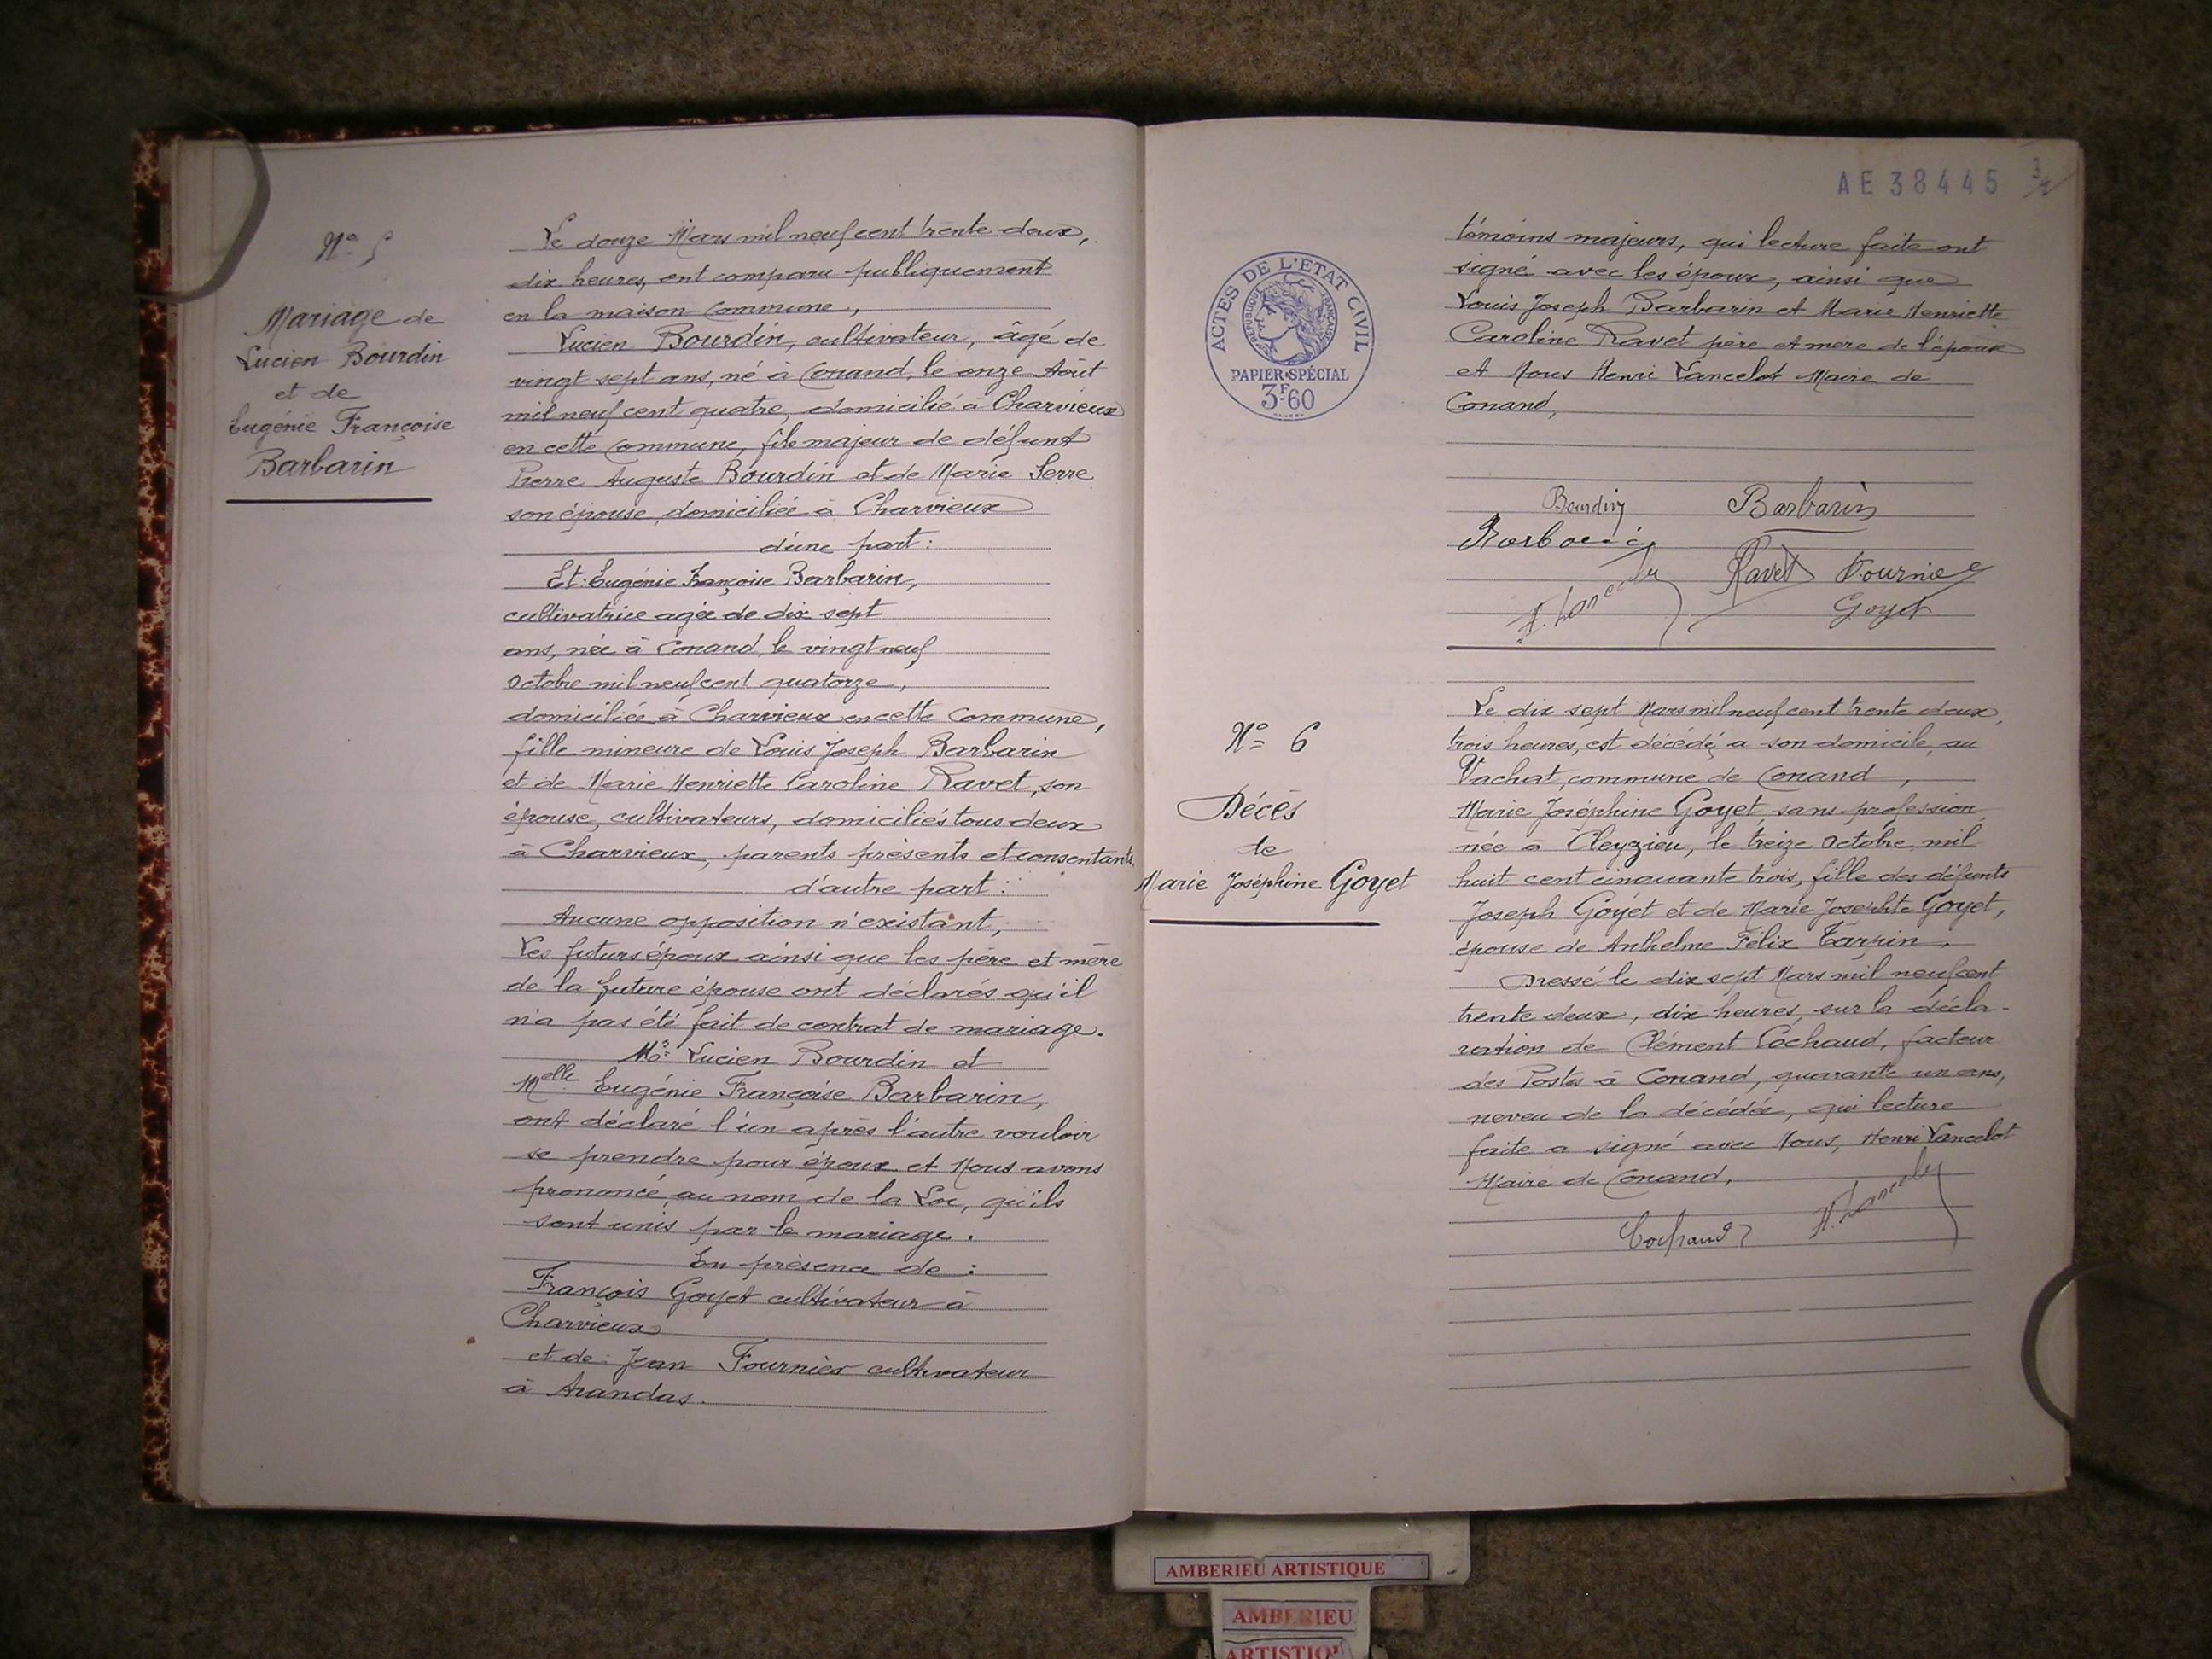 N° 5
Mariage de
Lucien Bourdin
et de
Eugénie Françoise
Barbarin
Le douze Mars mil neuf cent trente deux,
dix heures, ont comparu publiquement
en la maison commune,
Lucien Bourdin, cultivateur, âgé de
vingt sept ans, né à Conand, le onze Août
mil neuf cent quatre, domicilié à Charvieux
en cette Commune, fils majeur de défunt
Pierre Auguste Bourdin et de Marie Serre
son épouse, domiciliée à Charvieux
d'une part :
Et Eugénie Françoise Barbarin,
cultivatrice agée de dix sept
ans, née à Conand, le vingt neuf
Octobre mil neuf cent quatorze,
domiciliée à Charvieux en cette Commune,
fille mineure de Louis Joseph Barbarin
et de Marie Henriette Caroline Ravet, son
épouse, cultivateurs, domiciliés tous deux
à Charvieux, parents présents et consentants.
d'autre part :
Aucune opposition n'existant,
Les futurs époux ainsi que les père et mère
de la future épouse ont déclarés qu'il
n'a pas été fait de contrat de mariage.
Mr Lucien Bourdin et
Melle Eugénie Françoise Barbarin,
ont déclaré l'un après l'autre vouloir
se prendre pour époux et Nous avons
prononcé, au nom de la Loi, qu'ils
sont unis par le mariage.
En présence de :
François Goyet cultivateur à
Charvieux
et de Jean Fournier cultivateur
à Arandas.
AE 38445
3/
ACTES DE L'ETAT CIVIL
REPUBLIQUE FRANÇAISE
PAPIER SPÉCIAL
3F60
témoins majeurs, qui lecture faite ont
signé avec les époux, ainsi que
Louis Joseph Barbarin et Marie Henriette
Caroline Ravet père et mère de l'épouse
et Nous Henri Lancelot Maire de
Conand,
Bourdin Barbarin
Barbarin
H. Lancelot Ravet Fournier
Goyet
N° 6
Décès
de
Marie Joséphine Goyet
Le dix sept Mars mil neuf cent trente deux,
trois heures, est décédé a son domicile, au
Vachat, commune de Conand,
Marie Joséphine Goyet sans profession
née à Cleyzieu, le treize Octobre, mil
huit cent cinquante trois, fille des défunts
Joseph Goyet et de Marie Josephte Goyet,
épouse de Anthelme Félix Tarpin.
Dressé le dix sept Mars mil neuf cent
trente deux, dix heures, sur la décla-
ration de Clément Cochaud, facteur
des Postes à Conand, quarante un ans,
neveu de la décédée, qui lecture
faite a signé avec Nous, Henri Lancelot
Maire de Conand,
Cochaud H. Lancelot
AMBERIEU ARTISTIQUE
AMBERIEU
ARTISTIQU